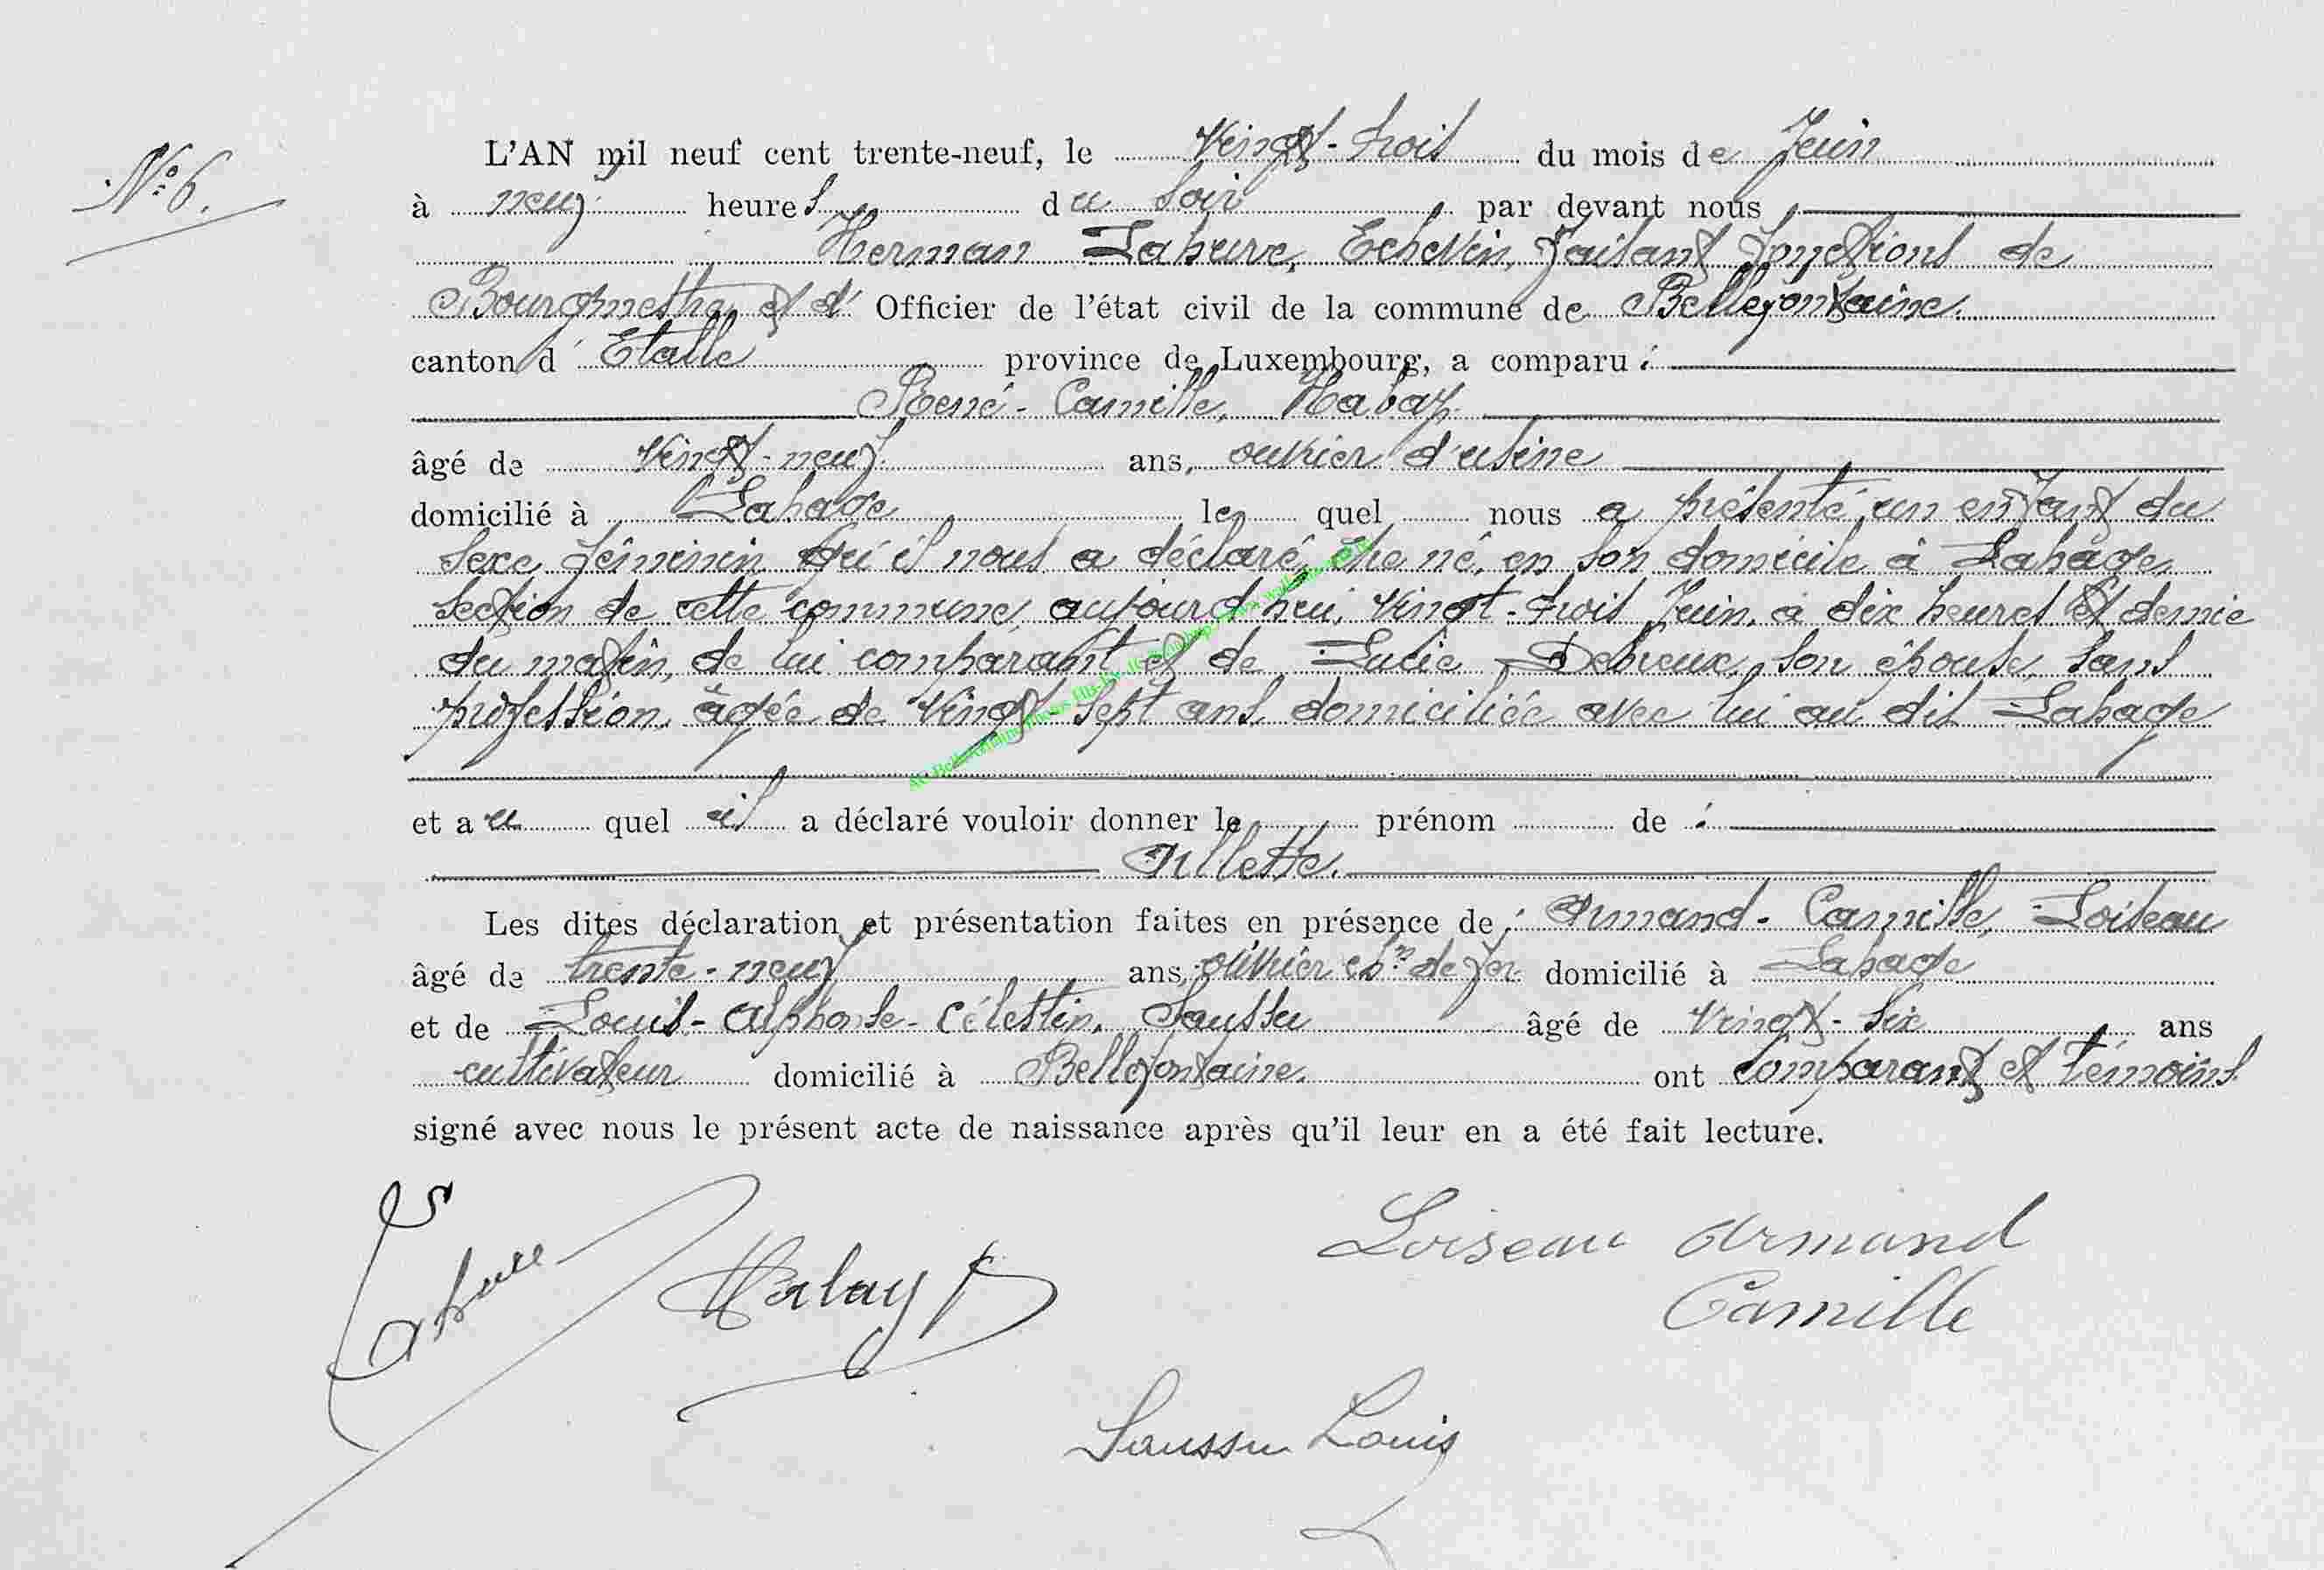 N° 6.
L'AN mil neuf cent trente-neuf, le Vingt-trois du mois de Juin
à neuf heures du soir par devant nous
Herman Lahure, Echevin, faisant fonctions de
Bourgmestre et d' Officier de l'état civil de la commune de Bellefontaine.
canton d'Etalle province de Luxembourg, a comparu :
René-Camille, Habay.
âgé de Vingt-neuf ans, ouvrier d'usine
domicilié à Lahage lequel nous a présenté un enfant du
sexe féminin qu'il nous a déclaré être né, en son domicile à Lahage,
section de cette commune, aujourd'hui, vingt-trois Juin, à dix heures et demie
du matin, de lui comparant et de Lucie Debreux, son épouse, sans
profession, âgée de Vingt-sept ans, domiciliée avec lui au dit Lahage
et auquel il a déclaré vouloir donner le prénom de :
Les dites déclaration et présentation faites en présence de : Armand-Camille, Loiseau
âgé de trente-neuf ans, ouvrier chin de fer domicilié à Lahage
et de Louis-Alphonse-Célestin, Saussu âgé de Vingt-six ans
cultivateur domicilié à Bellefontaine. ont comparant et témoins
signé avec nous le présent acte de naissance après qu'il leur en a été fait lecture.
Lahure
Habay
Loiseau Armand
Camille
Saussu Louis